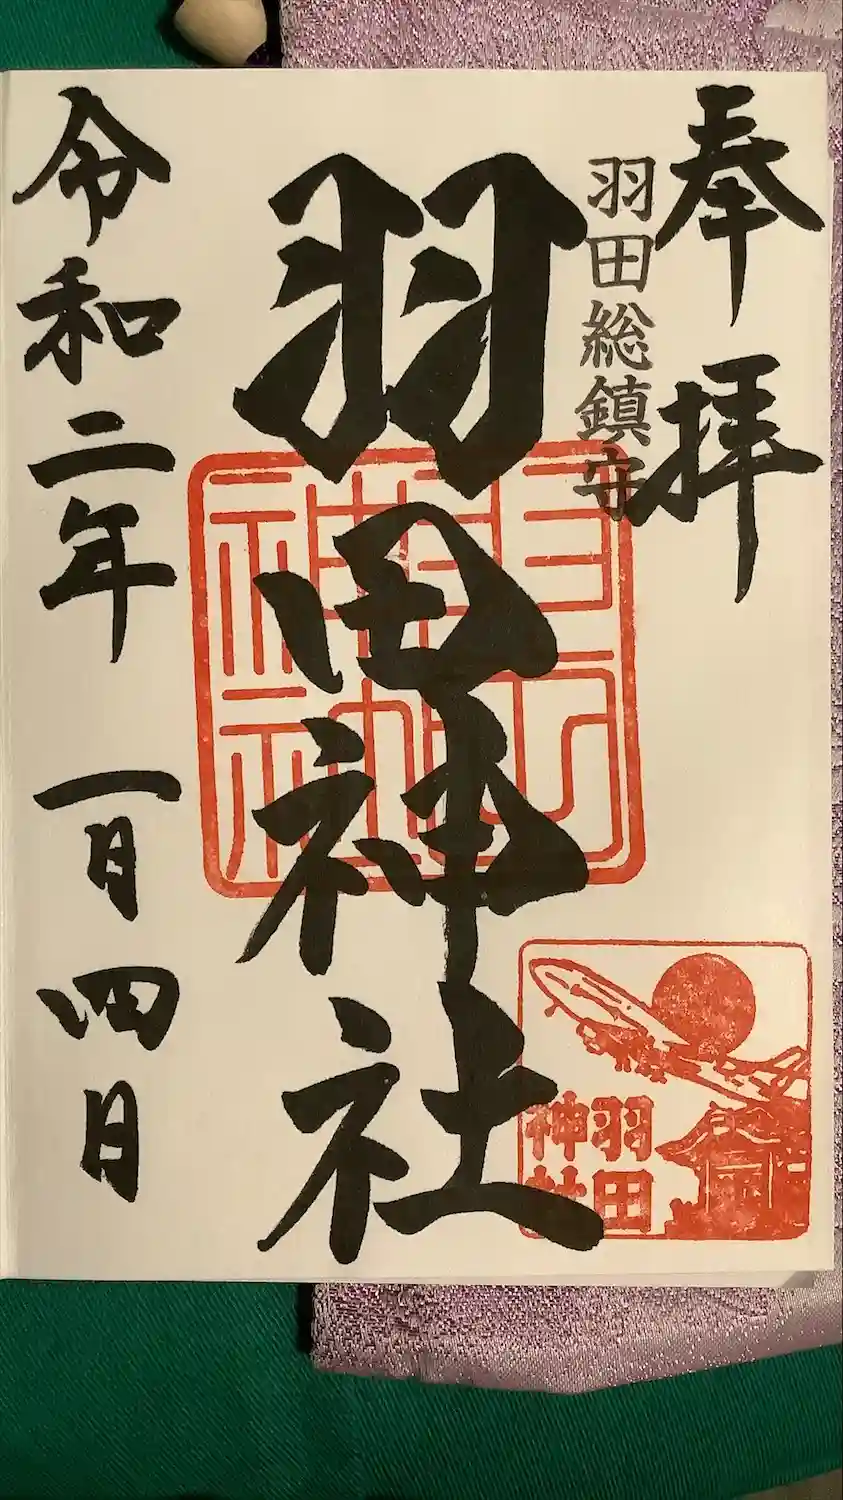 奉拝
羽田総鎮守
羽田神社
羽田
神社
令和二年 一月四日